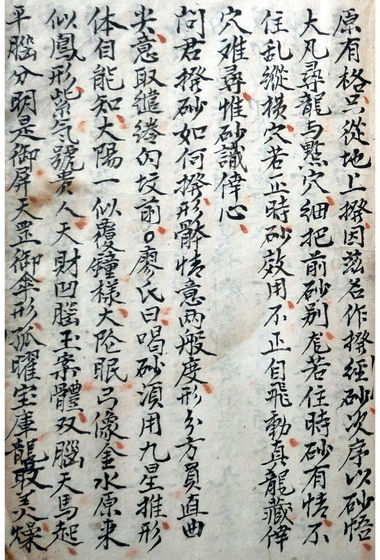 原有格只從地上撥因茲名作撥經砂次序以砂悟
大凡尋龍与點穴細把前砂别若住時砂有情不
住乱縱横穴若正時砂效用不正自飛動真龍藏倖
穴难尋惟砂識倖心
問君撥砂如何撥形骸情意两般度形分方員直曲
尖意取繾綣向坟前。廖氏曰喝砂須用九星推形
体自能知太陽一似覆鐘樣太阴眠弓像金水原来
似鳳形紫气號贵人天財凹腦玉案體双腦天馬起
平腦分明是御屏天罡御傘形孤曜宝庫龍最美燥